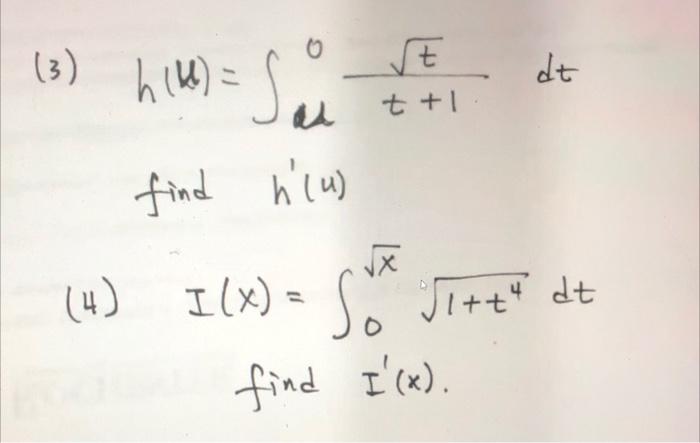 (3) h(u) = ∫_u^0 √t / (t+1) dt
find h'(u)
(4) I(x) = ∫_0^√x √(1+t^4) dt
find I'(x).